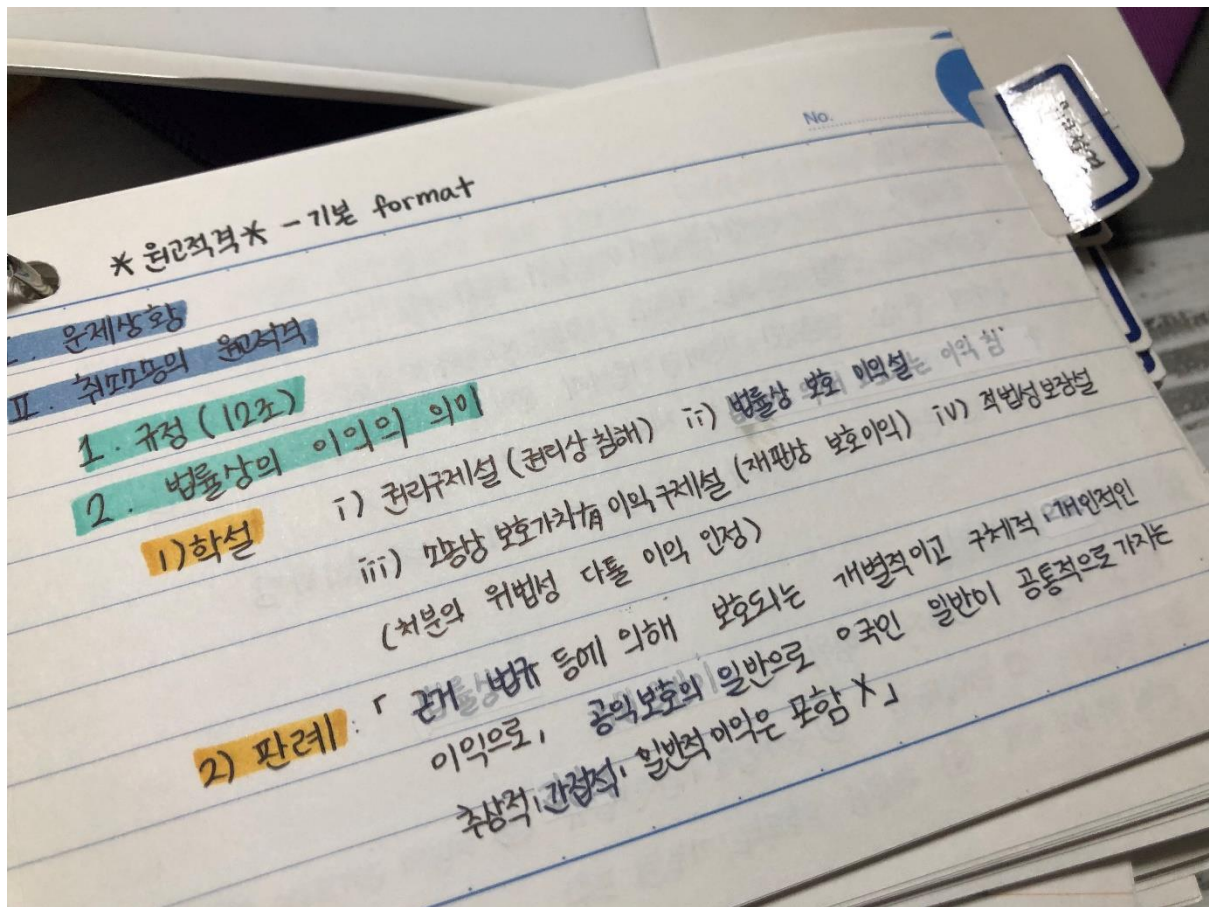 No.
* 원고적격 * - 기본 format
I. 문제상황
II. 취소소송의 원고적격
1. 규정 (12조)
2. 법률상의 이익의 의미
1) 학설 i) 권리구제설 (권리상 침해) ii) 법률상 보호 이익설
iii) 소송상 보호가치有 이익구제설 (재판상 보호이익) iv) 적법성보장설
(처분의 위법성 다툴 이익 인정)
2) 판례 : 「근거 법규 등에 의해 보호되는 개별적이고 구체적, 개인적인
이익으로, 공익보호의 일반으로 ㅇ국인 일반이 공통적으로 가지는
추상적, 간접적, 일반적 이익은 포함 X」